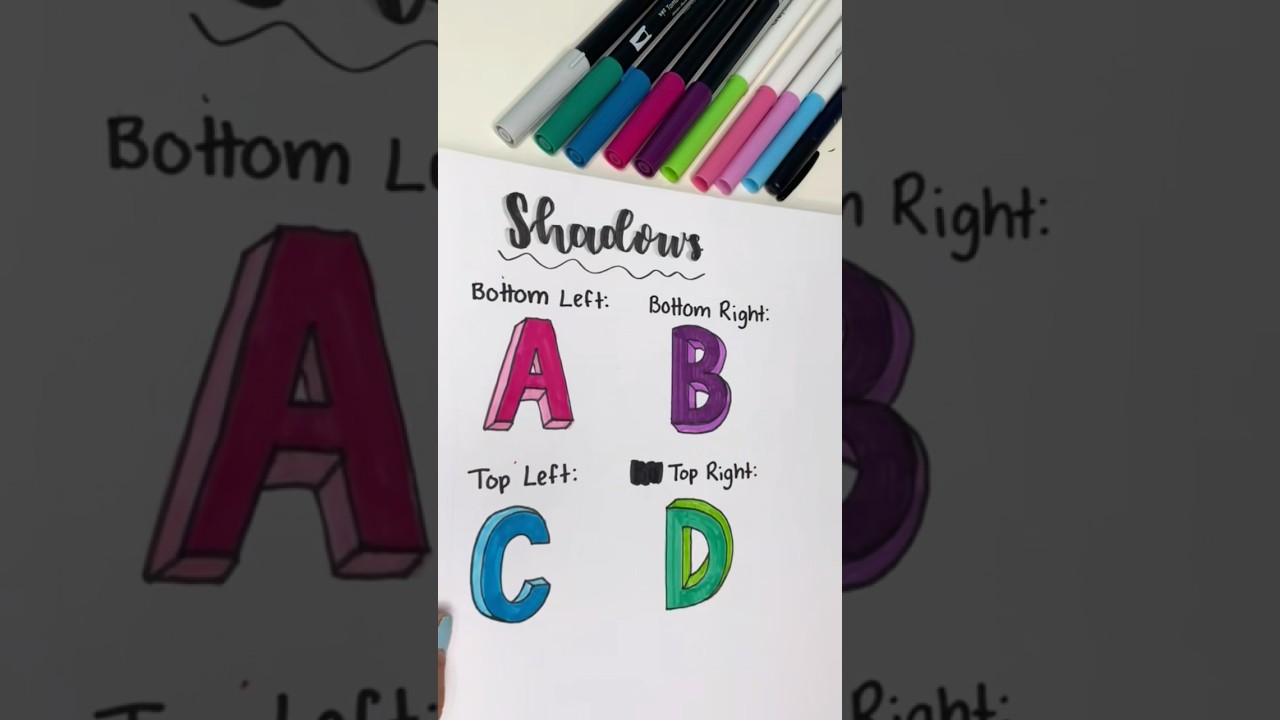 Shadows
Bottom Left:
Bottom Right:
A
B
Top Left:
Top Right:
C
D